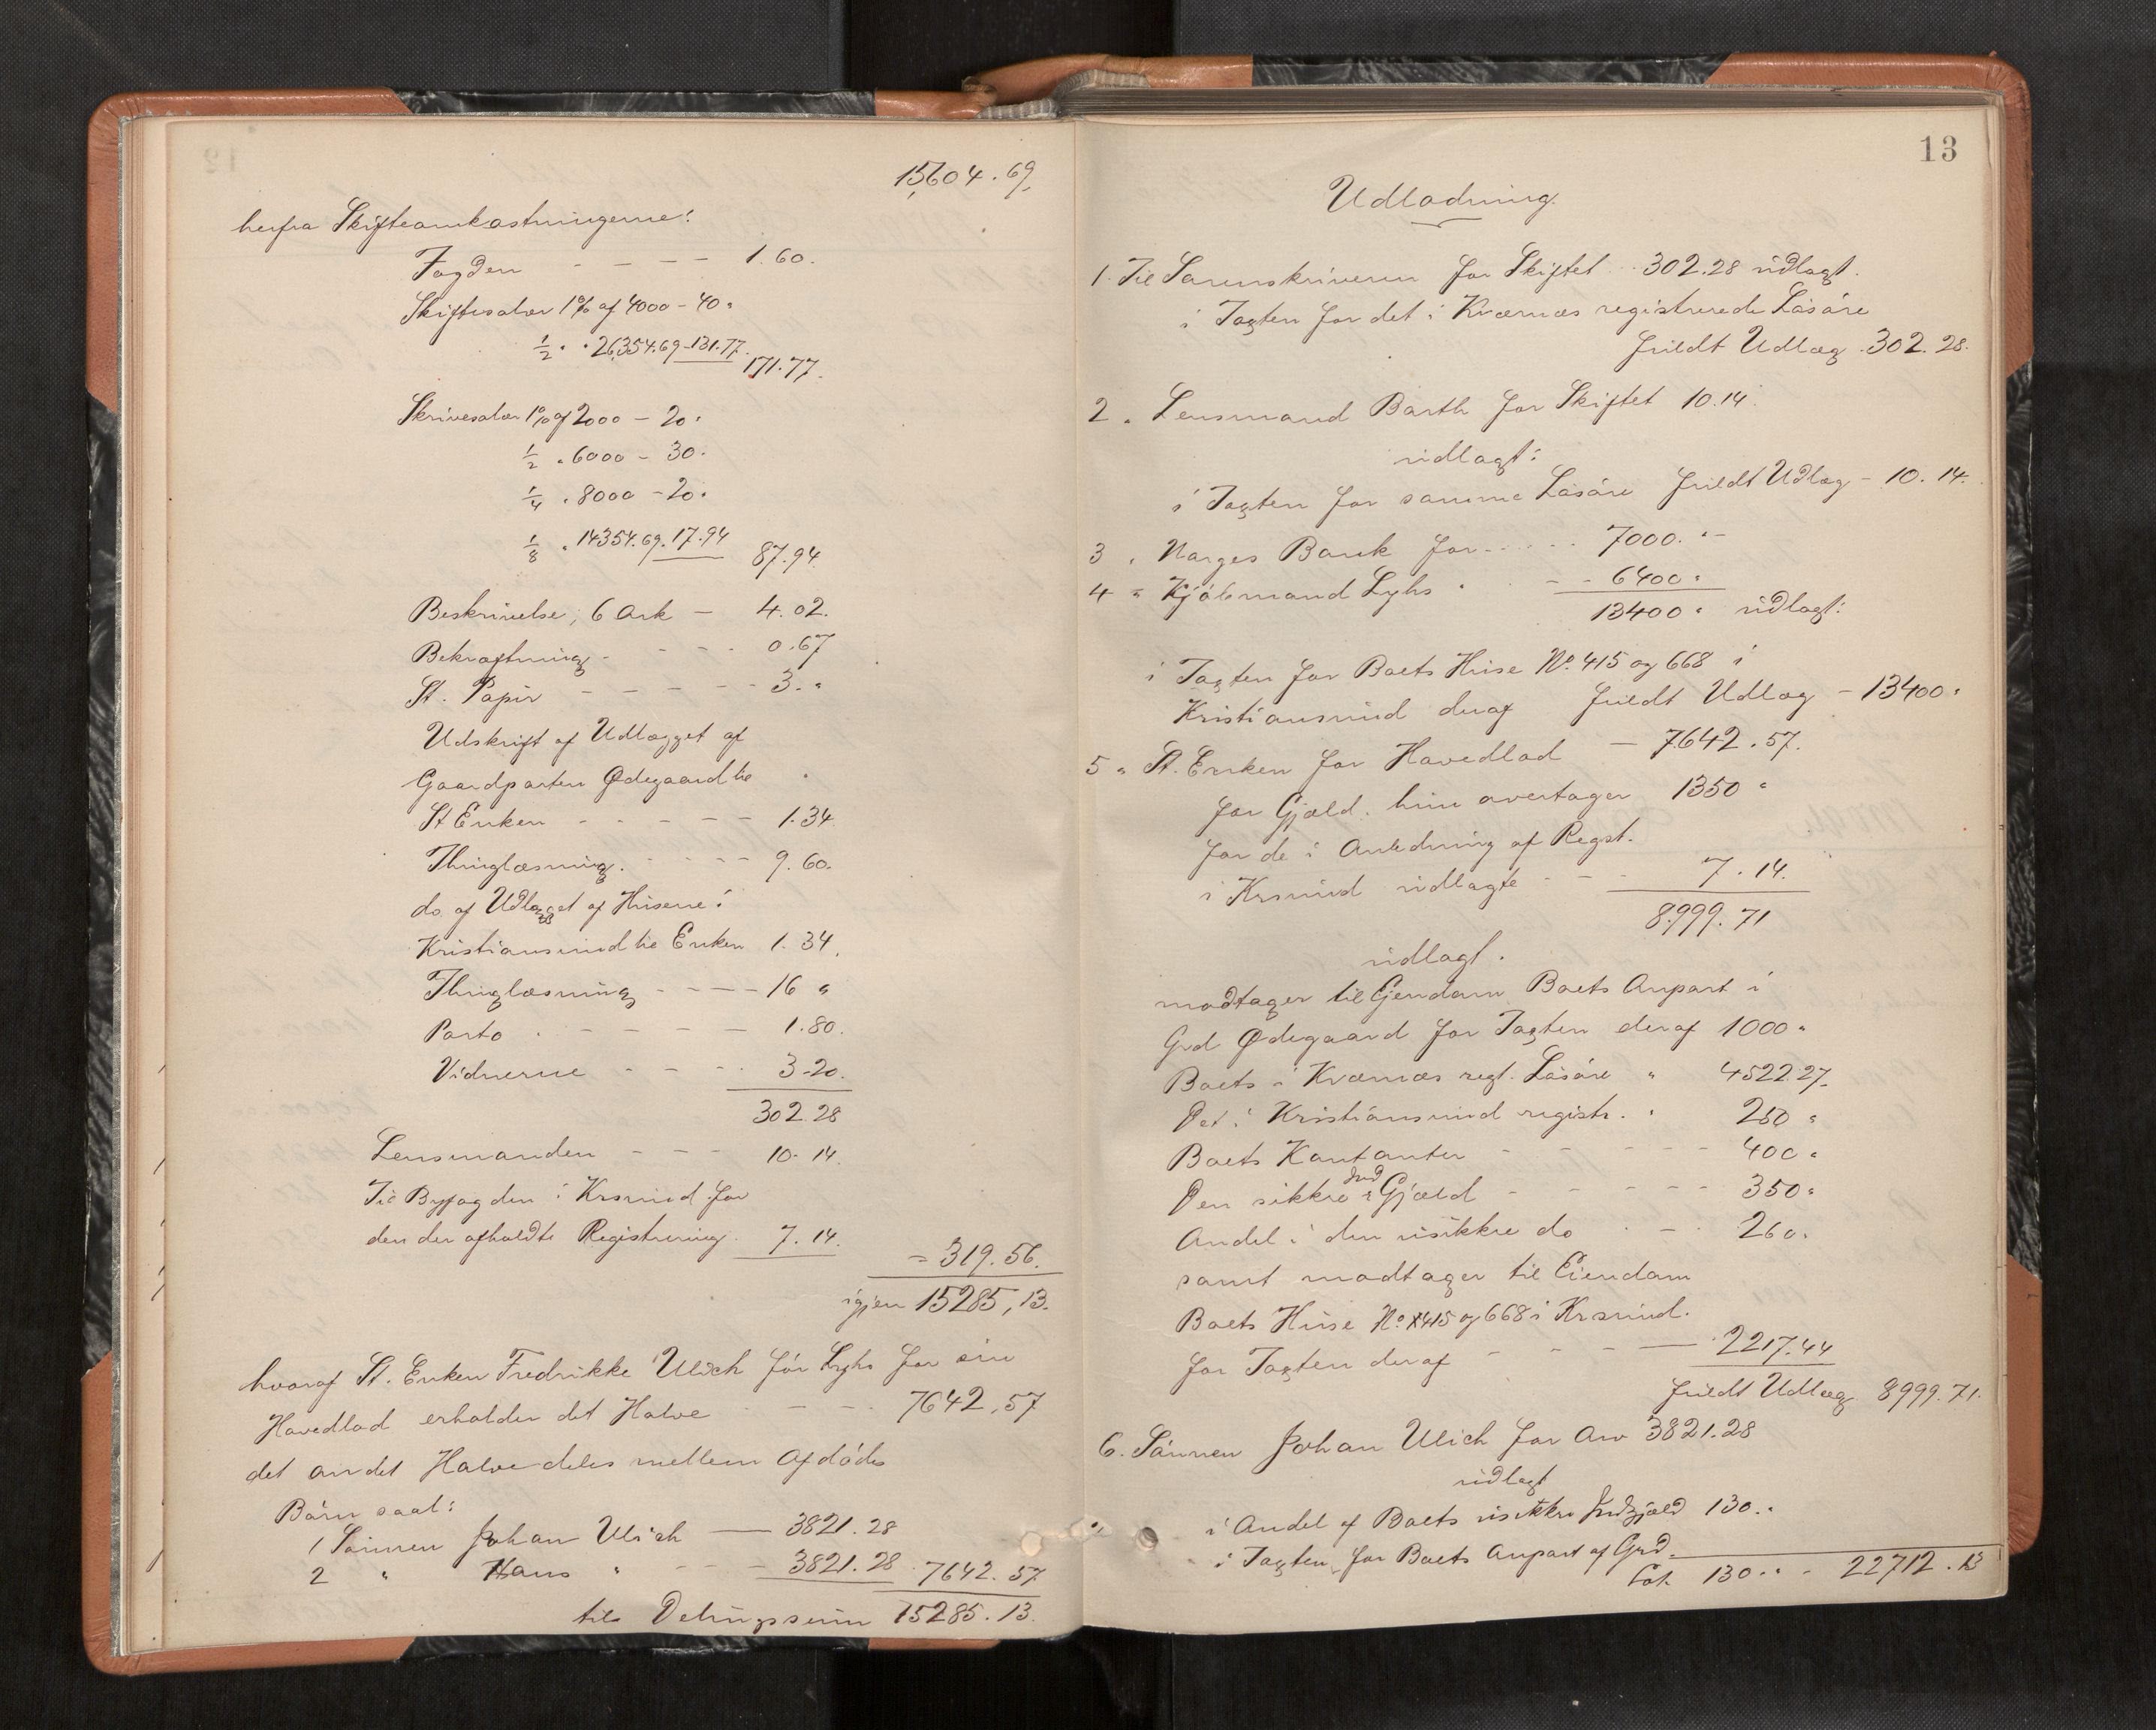 15604.69
herfra Skifteomkostningerne:
Fogden - - - - 1.60.
Skiftesalær 1% af 4000 - 40 "
1/2 " " 26354.69 - 131.77
171.77.
Skrivesalær 1% af 2000 - 20 "
1/2 " 6000 - 30 "
1/4 " 8000 - 20 "
1/8 " 14354.69. 17.94
87.94.
Beskrivelse, 6 Ark - 4.02.
Bekræftning - - - - 0.67
St. Papir - - - - - 3. "
Udskrift af Udlægget af
Gaardparten Ødegaard til
St Enken - - - - - 1.34
Thinglæsning. - - - - 9.60.
do af Udlægget af Husene i
Kristianssund til Enken 1.34.
Thinglæsning - - - - 16 "
Porto - - - - - 1.80.
Vidnerne - - - - 3.20.
302.28
Lensmanden - - - 10.14.
Til Byfogden i Krsund for
den der afholdte Registrering. 7.14.
= 319.56.
igjen 15285,13.
hvoraf St. Enken Fredrikke Ulich fød Lyhs for sin
Hovedlod erholder det Halve - - - 7642,57
det andet Halve deles mellem Afdødes
Børn saal:
1 Sønnen Johan Ulich - 3821.28
2 " Hans " - - - 3821.28. 7642.57
tils Delingssum 15285.13.
13
Udlodning.
1. Til Sorenskriveren for Skiftet 302.28 udlagt.
i Taxten for det i Kværnæs registrerede Løsøre
fuldt Udlæg. 302.28.
2. Lensmand Barth for Skiftet 10.14.
udlagt:
i Taxten for samme Løsøre fuldt Udlæg - 10.14.
3. Norges Bank for - - - - 7000. "
4 " Kjøbmand Lyhs " - - 6400 "
13400 " udlagt:
i Taxten for Boets Huse No. 415 og 668 i
Kristianssund deraf fuldt Udlæg - 13400 "
5 " St. Enken for Hovedlod - 7642.57.
for Gjæld. hun overtager 1350 "
for de i Anledning af Regst.
i Krsund udlagte - - - 7.14.
8999.71
udlagt.
modtager til Ejendom Boets Anpart i
Grd Ødegaard for Taxten deraf 1000 "
Boets i Kværnæs regt. Løsøre " 4522.27.
Det i Kristianssund registr. " 250 "
Boets Kontanter - - - - - 400 "
Den sikkre Ind Gjæld - - - - - 350 "
Andel i den usikkre do - - 260.
samt modtager til Eiendom
Boets Huse No. 415 og 668 i Krsund.
for Taxten deraf - - - - 2217.44
fuldt Udlæg 8999.71.
6. Sønnen Johan Ulich for Arv 3821.28
udlagt
i Andel af Boets usikkre Indgjæld 130. "
i Taxten for Boets Anpart af Grd.
Lat. 130. " - 22712.13